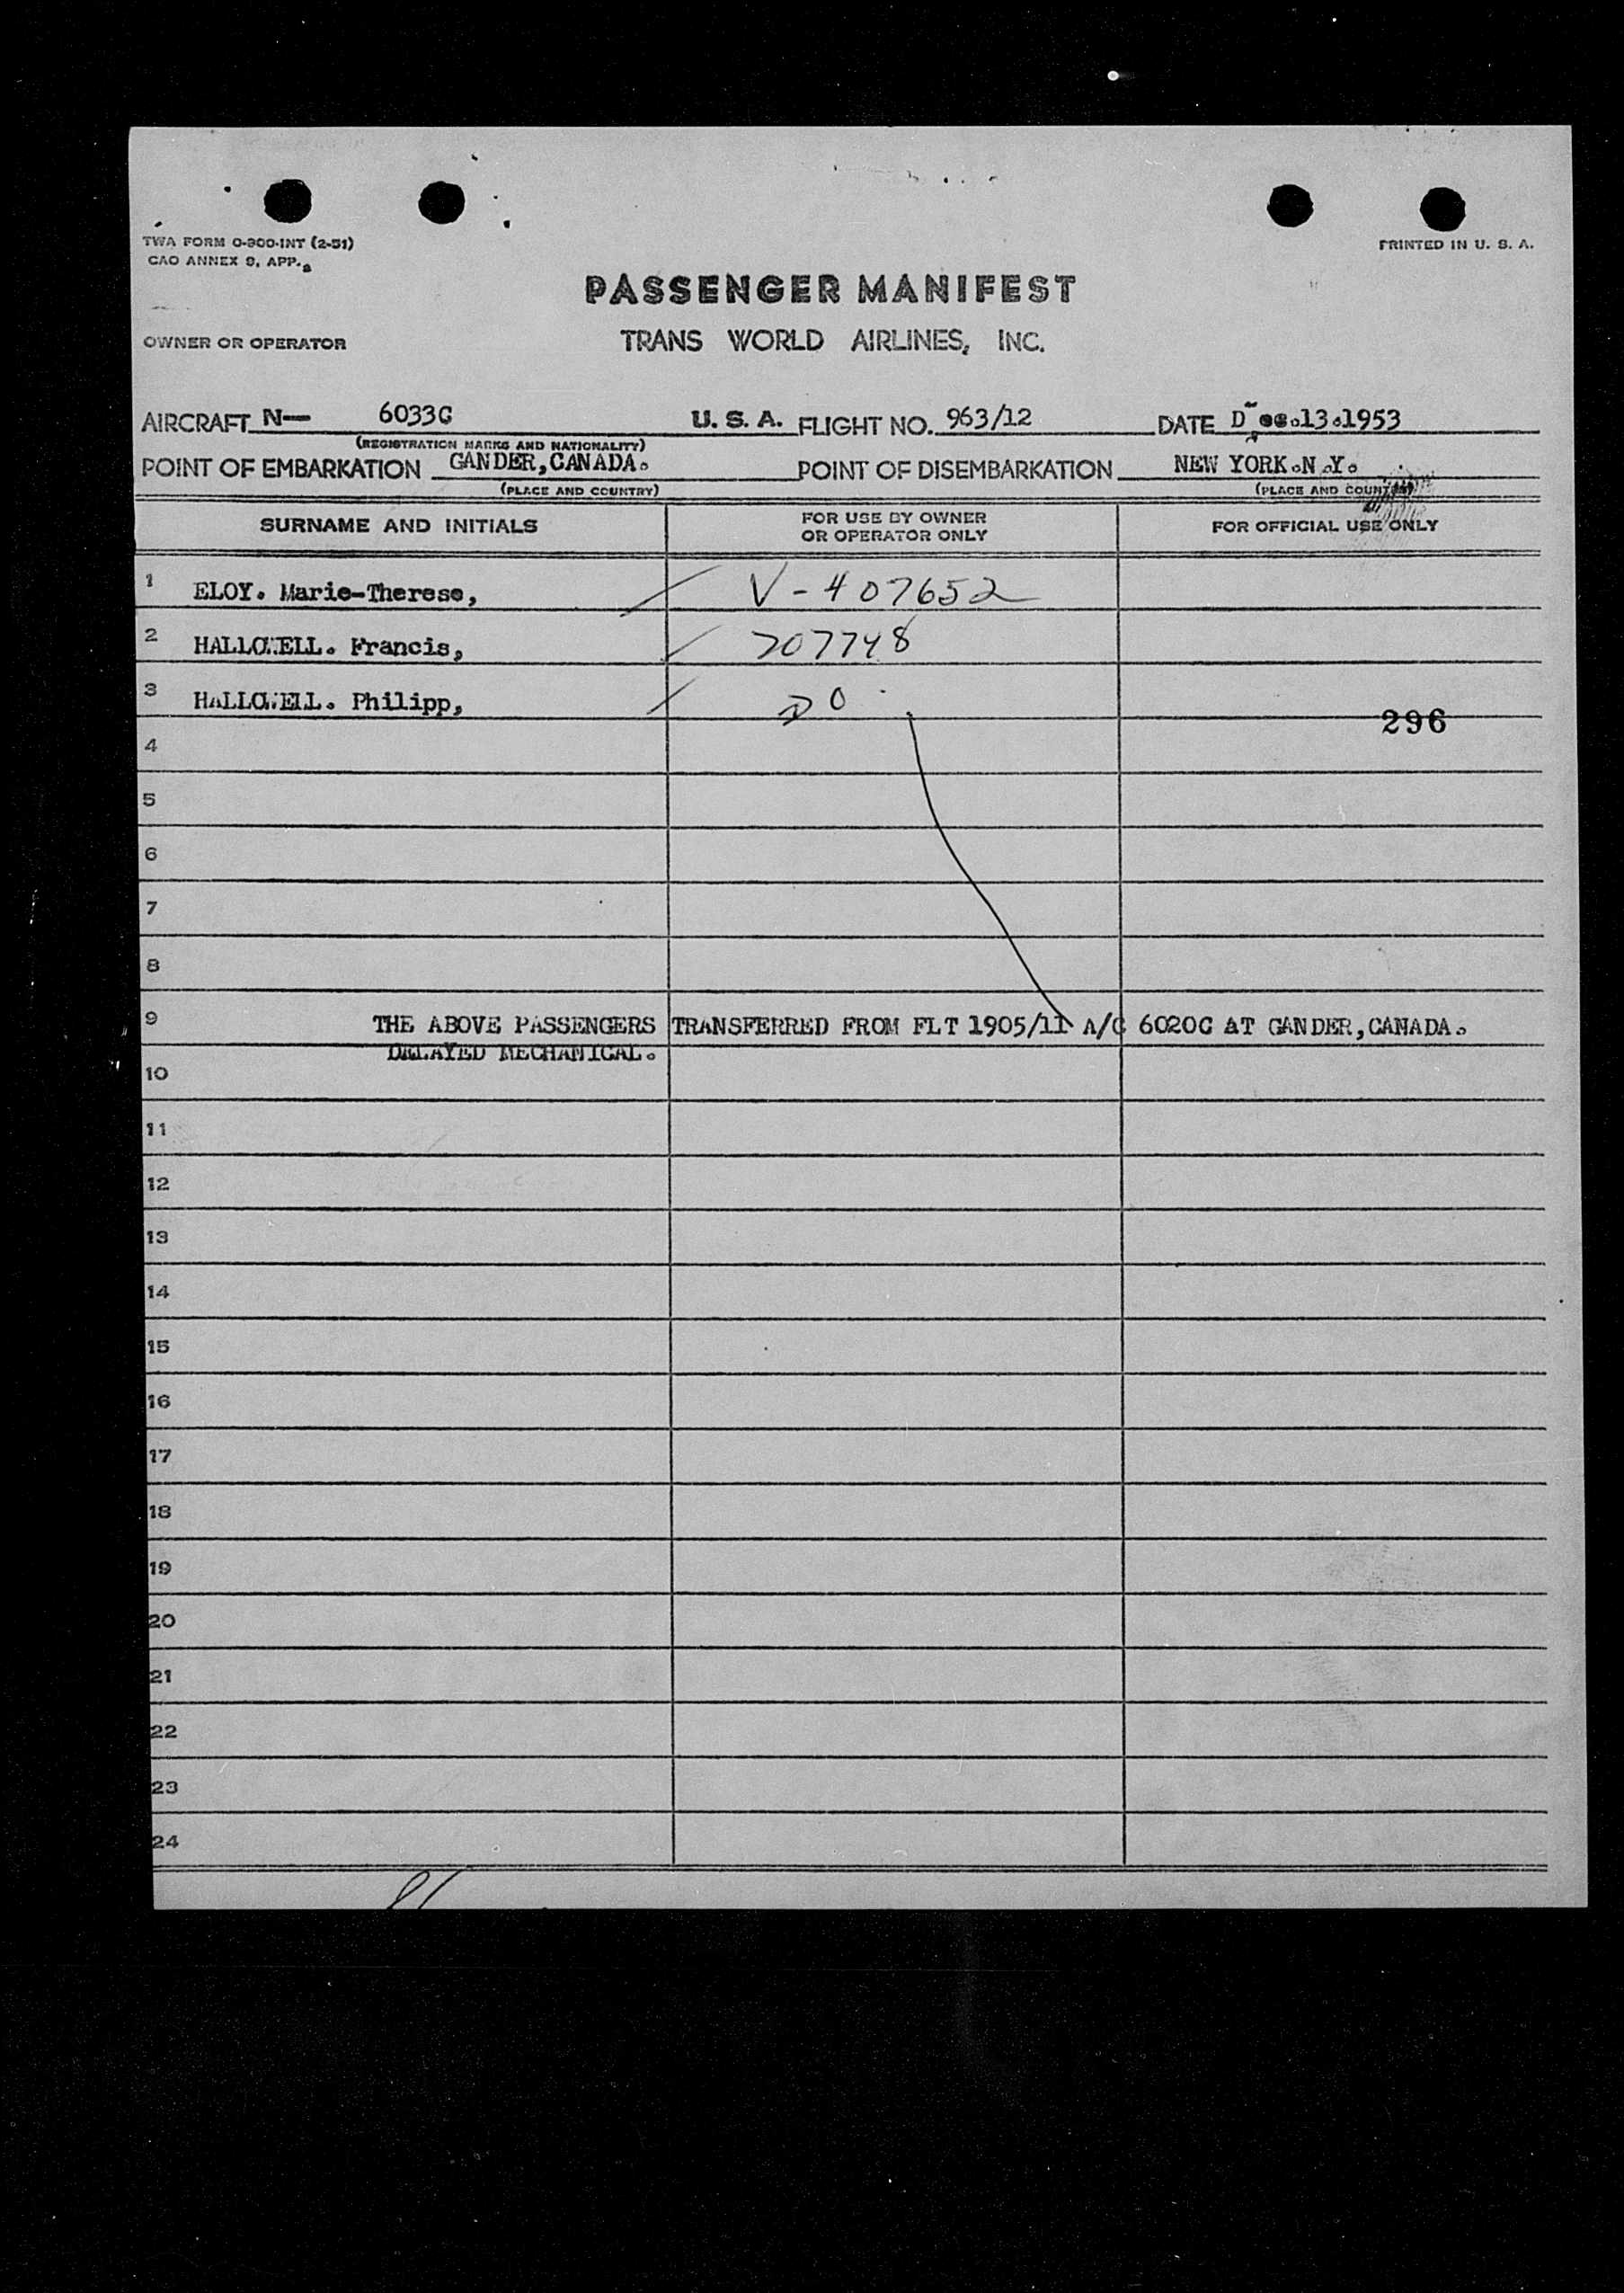 TWA FORM O-900-INT (2-51)
PRINTED IN U. S. A.
CAO ANNEX 9, APP.
PASSENGER MANIFEST
OWNER OR OPERATOR TRANS WORLD AIRLINES, INC.
AIRCRAFT N— 6033C U. S. A. FLIGHT NO. 963/12 DATE Dec.13.1953
(REGISTRATION MARKS AND NATIONALITY)
POINT OF EMBARKATION GANDER,CANADA. POINT OF DISEMBARKATION NEW YORK.N.Y.
(PLACE AND COUNTRY) (PLACE AND COUNTRY)
SURNAME AND INITIALS FOR USE BY OWNER OR OPERATOR ONLY FOR OFFICIAL USE ONLY
1 ELOY. Marie-Therese, V-407652
2 HALLOWELL. Francis, 207748
3 HALLOWELL. Philipp, DO
296
4
5
6
7
8
9 THE ABOVE PASSENGERS TRANSFERRED FROM FLT 1905/11 A/C 6020C AT GANDER,CANADA.
DELAYED MECHANICAL.
10
11
12
13
14
15
16
17
18
19
20
21
22
23
24